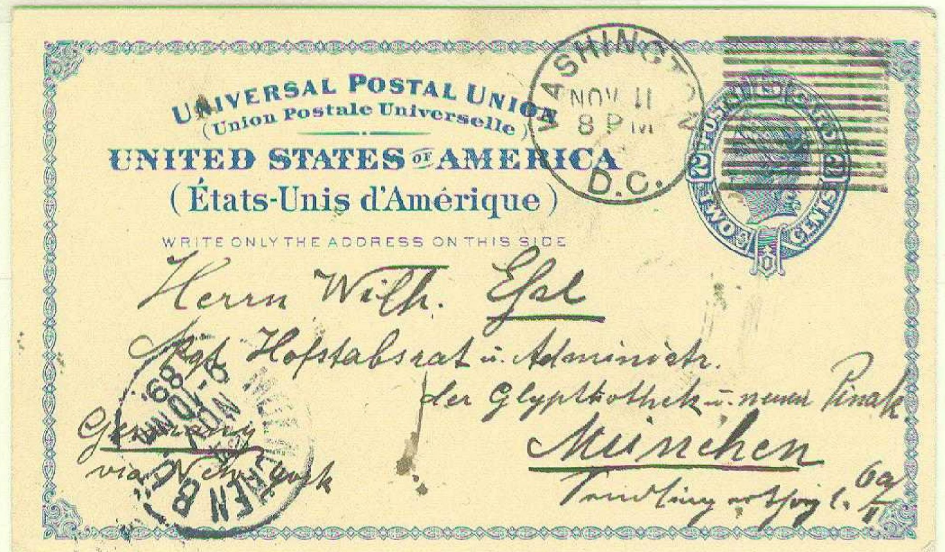 UNIVERSAL POSTAL UNION
(Union Postale Universelle)
UNITED STATES OF AMERICA
(États-Unis d'Amérique)
WRITE ONLY THE ADDRESS ON THIS SIDE
WASHINGTON
NOV 11
8 PM
D.C.
POSTAL CARD
2 2
TWO CENTS
Herrn Wilh.
Kgl. Hofstabsrat u. Administr.
der Glyptothek u. neuen Pinak
Germany
München
via New York
MÜNCHEN B.
NOV
89